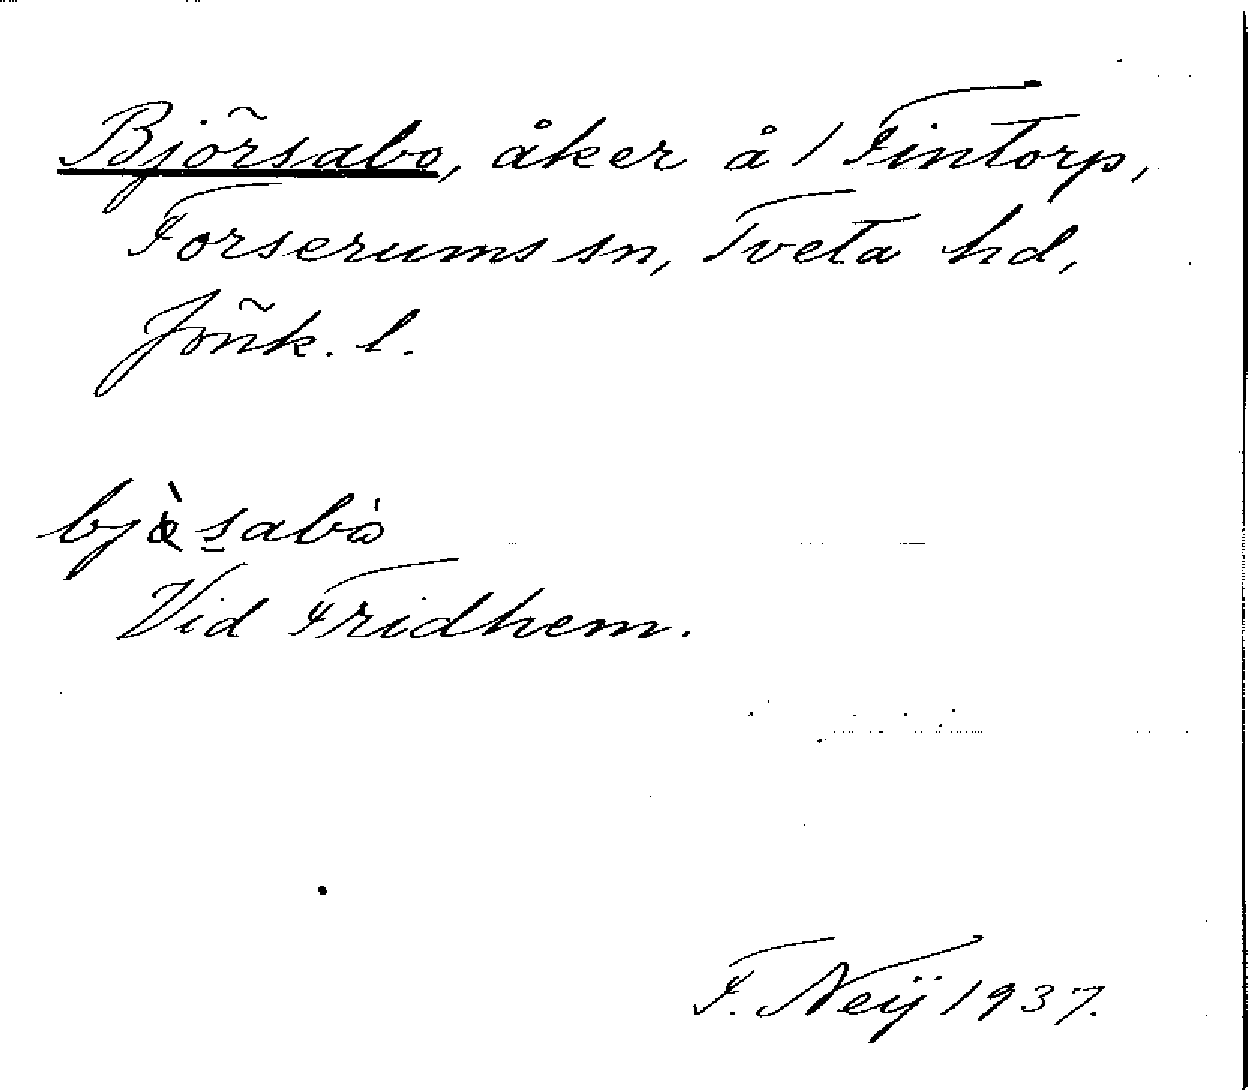 Björsabo, åker å 1 Fintorp,
Forserums sn, Tveta hd,
Jönk. l.
Vid Fridhem.
F. Neij 1937.